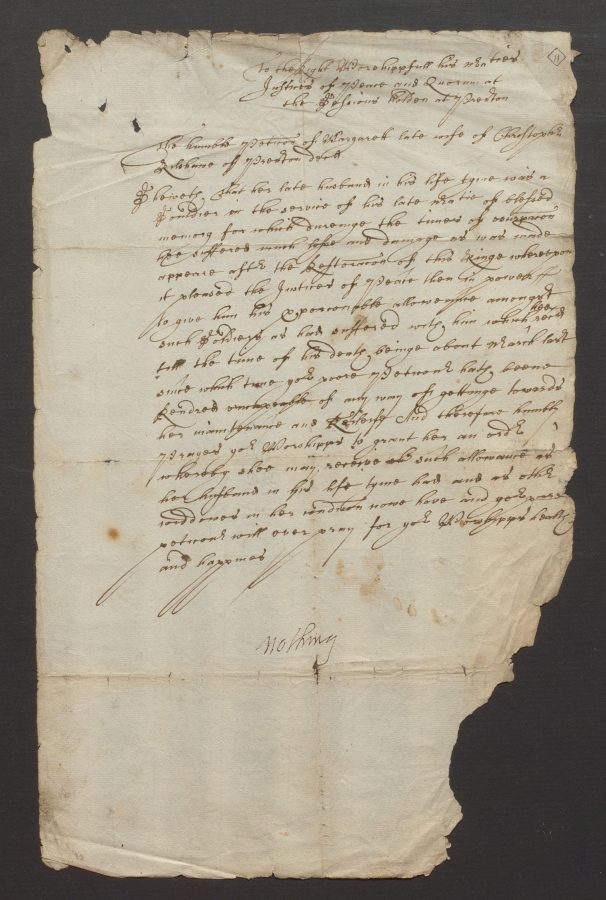 To the Right Worshippfull his Maties
Justices of Peace and Quorum at
the Sessions holden at Preston
The humble Peticon of Margarett late wife of Christopher
of Preston decd
Sheweth, That her late husband in his life tyme was a
Souldier in the service of his late Matie of blessed
memory for which dureinge the times of
hee suffered much losse and damage as was made
appeare after the Restoracon of this Kinge whereupon
it pleased the Justices of Peace then in power
to give him his allowance amongst
such Soldiers as had suffered with him which hee recd
till the time of his death beinge about March last
since which time yor poore Peticoner hath beene
Rendred uncapeable of any way of gettinge towards
her maintenance and And therefore humbly
Prayes yor Worshipps to grant her an order
whereby shee may receive such allowance as
her husband in his life tyme had and as other
widdowes in her condicon nowe have and yor poore
peticoner will ever pray for yor Worshipps health
and happines
nothing